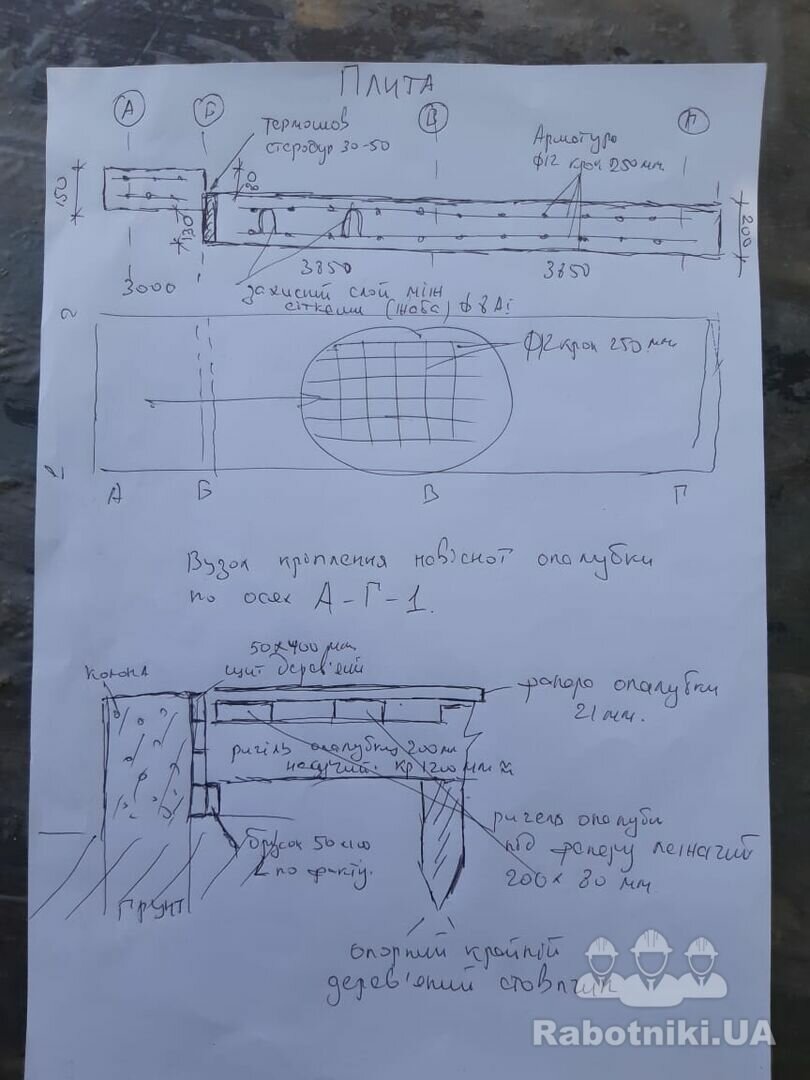 Плита
А Б В Г
термошов
стеродур 30-50
Арматура
ф12 крок 250 мм.
150
80
130
200
3000
3850
3850
захисний слой між
сітками (жаба) ф 8 АІ
2
ф12 крок 250 мм
1
А Б В Г
Вузол кріплення нависної опалубки
по осях А-Г-1.
50х400 мм.
щит дерев'яний
колона
фанера опалубки
21 мм.
ригіль опалубки 200мм
несучий. кр 1200 мм
ригель опалубки
під фанеру лежачий
200 х 80 мм
брусок 50
по факту.
Грунт
опорний крайній
дерев'яний стовпчик
Rabotniki.UA